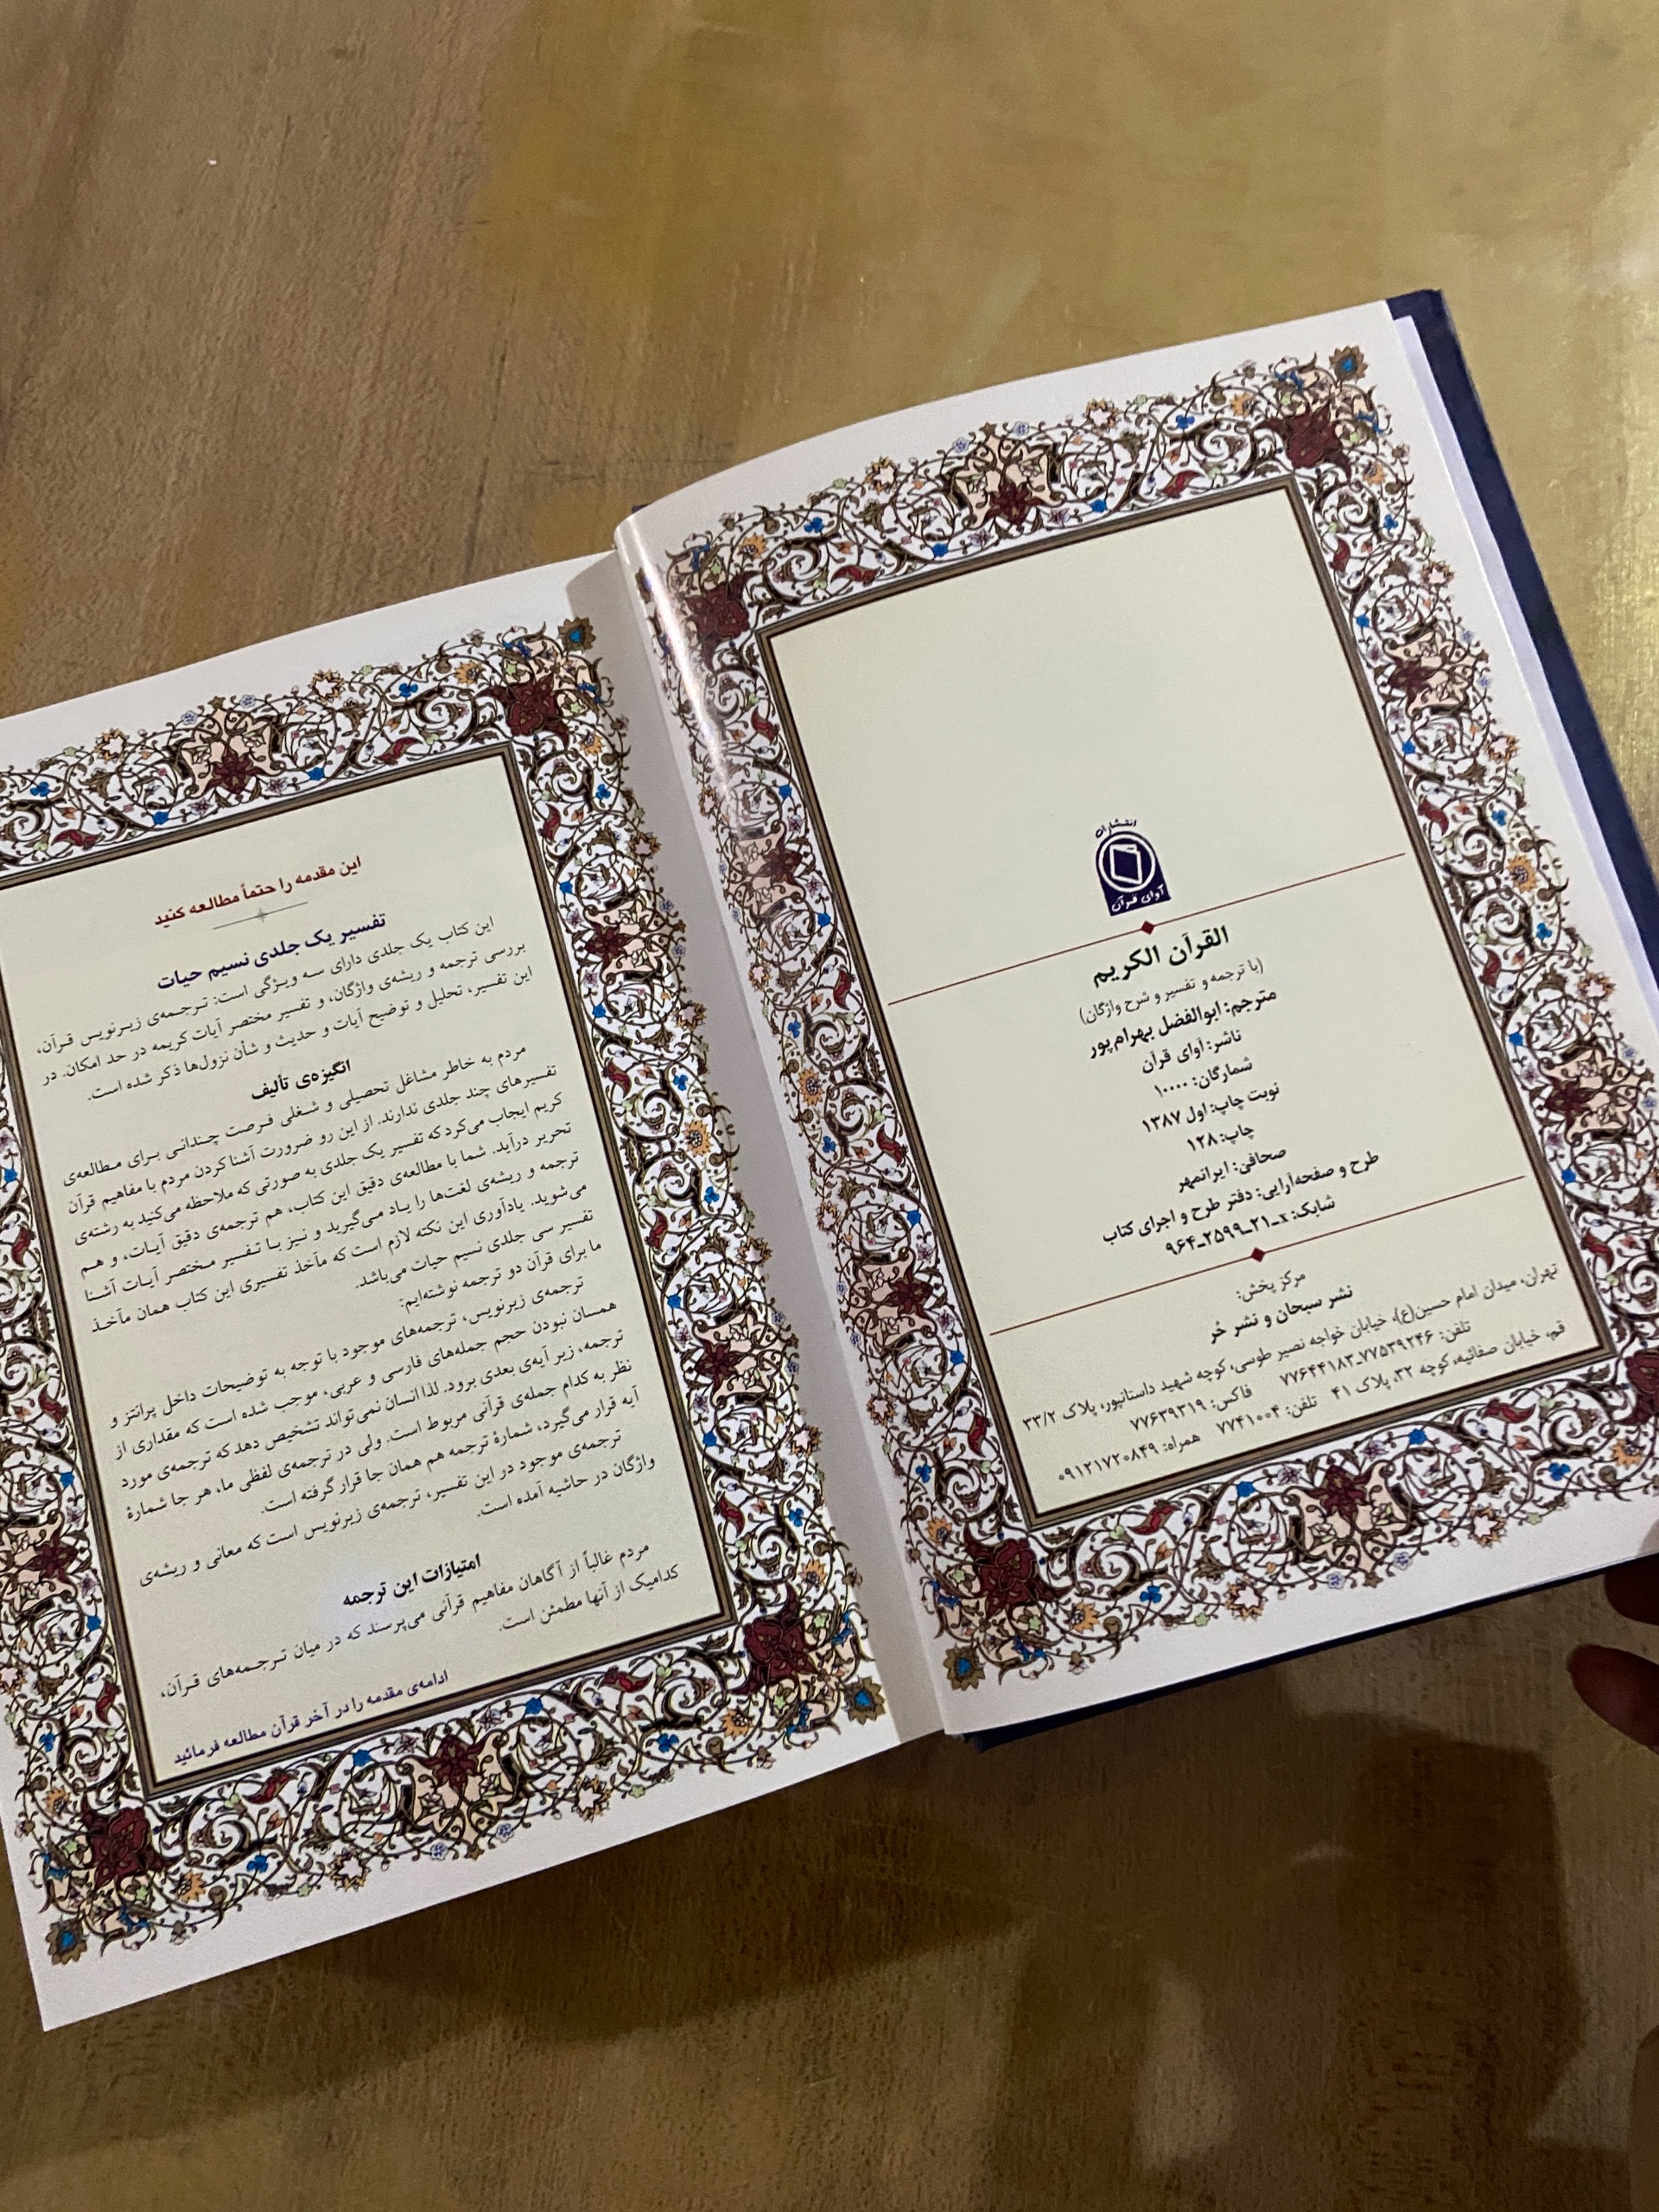 انتشارات
آوای قرآن
القرآن الکریم
(با ترجمه و تفسیر و شرح واژگان)
مترجم: ابوالفضل بهرام‌پور
ناشر: آوای قرآن
شمارگان: ۱۰۰۰۰
نوبت چاپ: اول ۱۳۸۷
چاپ: ۱۲۸
صحافی: ایرانمهر
طرح و صفحه‌آرایی: دفتر طرح و اجرای کتاب
شابک: x-۲۱-۲۵۹۹-۹۶۴
مرکز پخش:
نشر سبحان و نشر حُر
تهران، میدان امام حسین(ع)، خیابان خواجه نصیر طوسی، کوچه شهید داستانپور، پلاک ۳۳/۲
تلفن: ۷۷۵۳۹۲۴۶-۷۷۶۴۴۱۸۳ فاکس: ۷۷۶۳۹۳۱۹
قم، خیابان صفائیه، کوچه ۳۲، پلاک ۴۱ تلفن: ۷۷۴۱۰۰۴ همراه: ۰۹۱۲۱۷۲۰۸۴۹
این مقدمه را حتماً مطالعه کنید
تفسیر یک جلدی نسیم حیات
این کتاب یک جلدی دارای سه ویژگی است: ترجمه‌ی زیرنویس قرآن،
بررسی ترجمه و ریشه‌ی واژگان، و تفسیر مختصر آیات کریمه در حد امکان. در
این تفسیر، تحلیل و توضیح آیات و حدیث و شأن نزول‌ها ذکر شده است.
انگیزه‌ی تألیف
مردم به خاطر مشاغل تحصیلی و شغلی فرصت چندانی برای مطالعه‌ی
تفسیرهای چند جلدی ندارند. از این رو ضرورت آشنا کردن مردم با مفاهیم قرآن
کریم ایجاب می‌کرد که تفسیر یک جلدی به صورتی که ملاحظه می‌کنید به رشته‌ی
تحریر درآید. شما با مطالعه‌ی دقیق این کتاب، هم ترجمه‌ی دقیق آیات، و هم
ترجمه و ریشه‌ی لغت‌ها را یاد می‌گیرید و نیز با تفسیر مختصر آیات آشنا
می‌شوید. یادآوری این نکته لازم است که مآخذ تفسیری این کتاب همان مآخذ
تفسیر سی جلدی نسیم حیات می‌باشد.
ما برای قرآن دو ترجمه نوشته‌ایم:
ترجمه‌ی زیرنویس، ترجمه‌های موجود با توجه به توضیحات داخل پرانتز و
همسان نبودن حجم جمله‌های فارسی و عربی، موجب شده است که مقداری از
ترجمه، زیر آیه‌ی بعدی برود. لذا انسان نمی‌تواند تشخیص دهد که ترجمه‌ی مورد
نظر به کدام جمله‌ی قرآنی مربوط است. ولی در ترجمه‌ی لفظی ما، هر جا شمارهٔ
آیه قرار می‌گیرد، شمارهٔ ترجمه هم همان جا قرار گرفته است.
ترجمه‌ی موجود در این تفسیر، ترجمه‌ی زیرنویس است که معانی و ریشه‌ی
واژگان در حاشیه آمده است.
امتیازات این ترجمه
مردم غالباً از آگاهان مفاهیم قرآنی می‌پرسند که در میان ترجمه‌های قرآن،
کدامیک از آنها مطمئن است.
ادامه‌ی مقدمه را در آخر قرآن مطالعه فرمائید